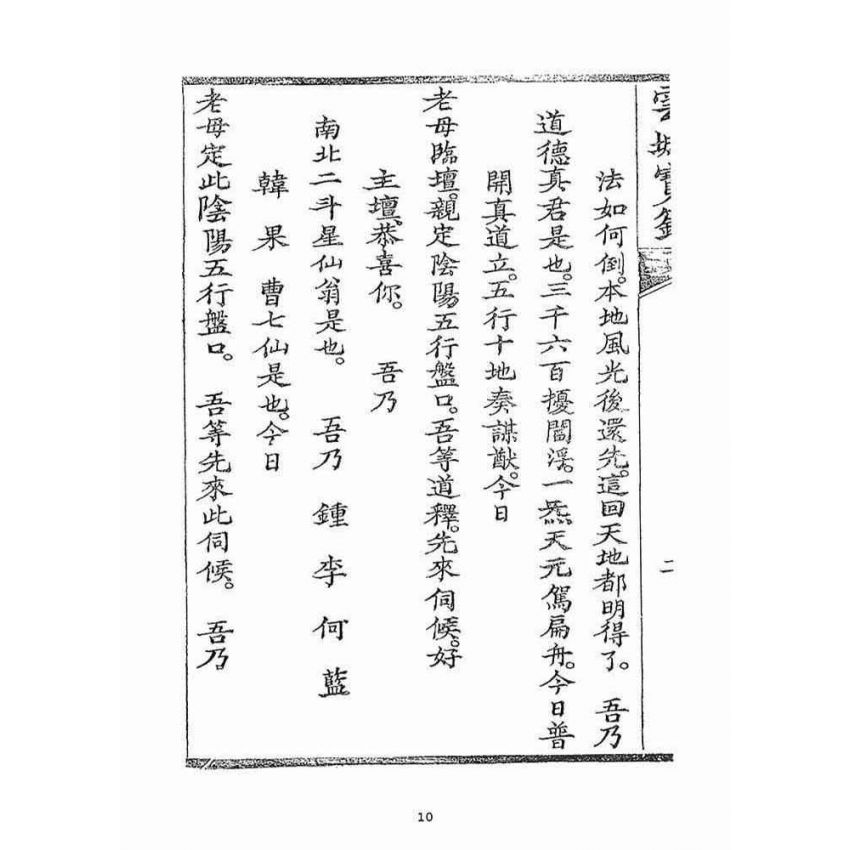 法如何倒。本地風光後還先。這回天地都明得了。 吾乃
道德真君是也。三千六百擾閻浮。一炁天元駕扁舟。今日普
開真道立。五行十地奏謀猷。今日
老母臨壇。親定陰陽五行盤口。吾等道釋。先來伺候。好
主壇。恭喜你。 吾乃
南北二斗星仙翁是也。 吾乃 鍾 李 何 藍
韓 果 曹七仙是也。今日
老母定此陰陽五行盤口。 吾等先來此伺候。 吾乃
二
10